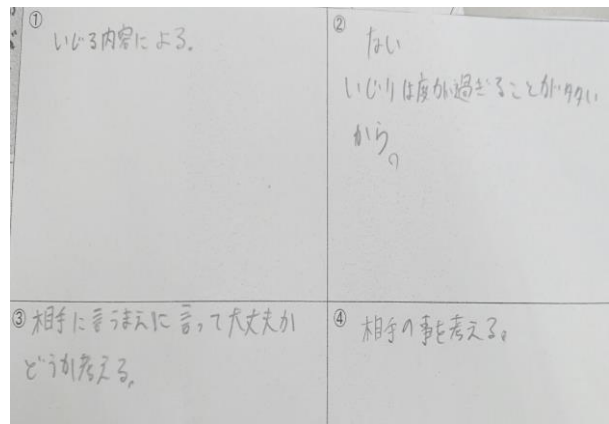 ①
いじる内容による。
②
ない
いじりは度が過ぎることが多い
から。
③相手に言うまえに言って大丈夫か
どうか考える。
④相手の事を考える。